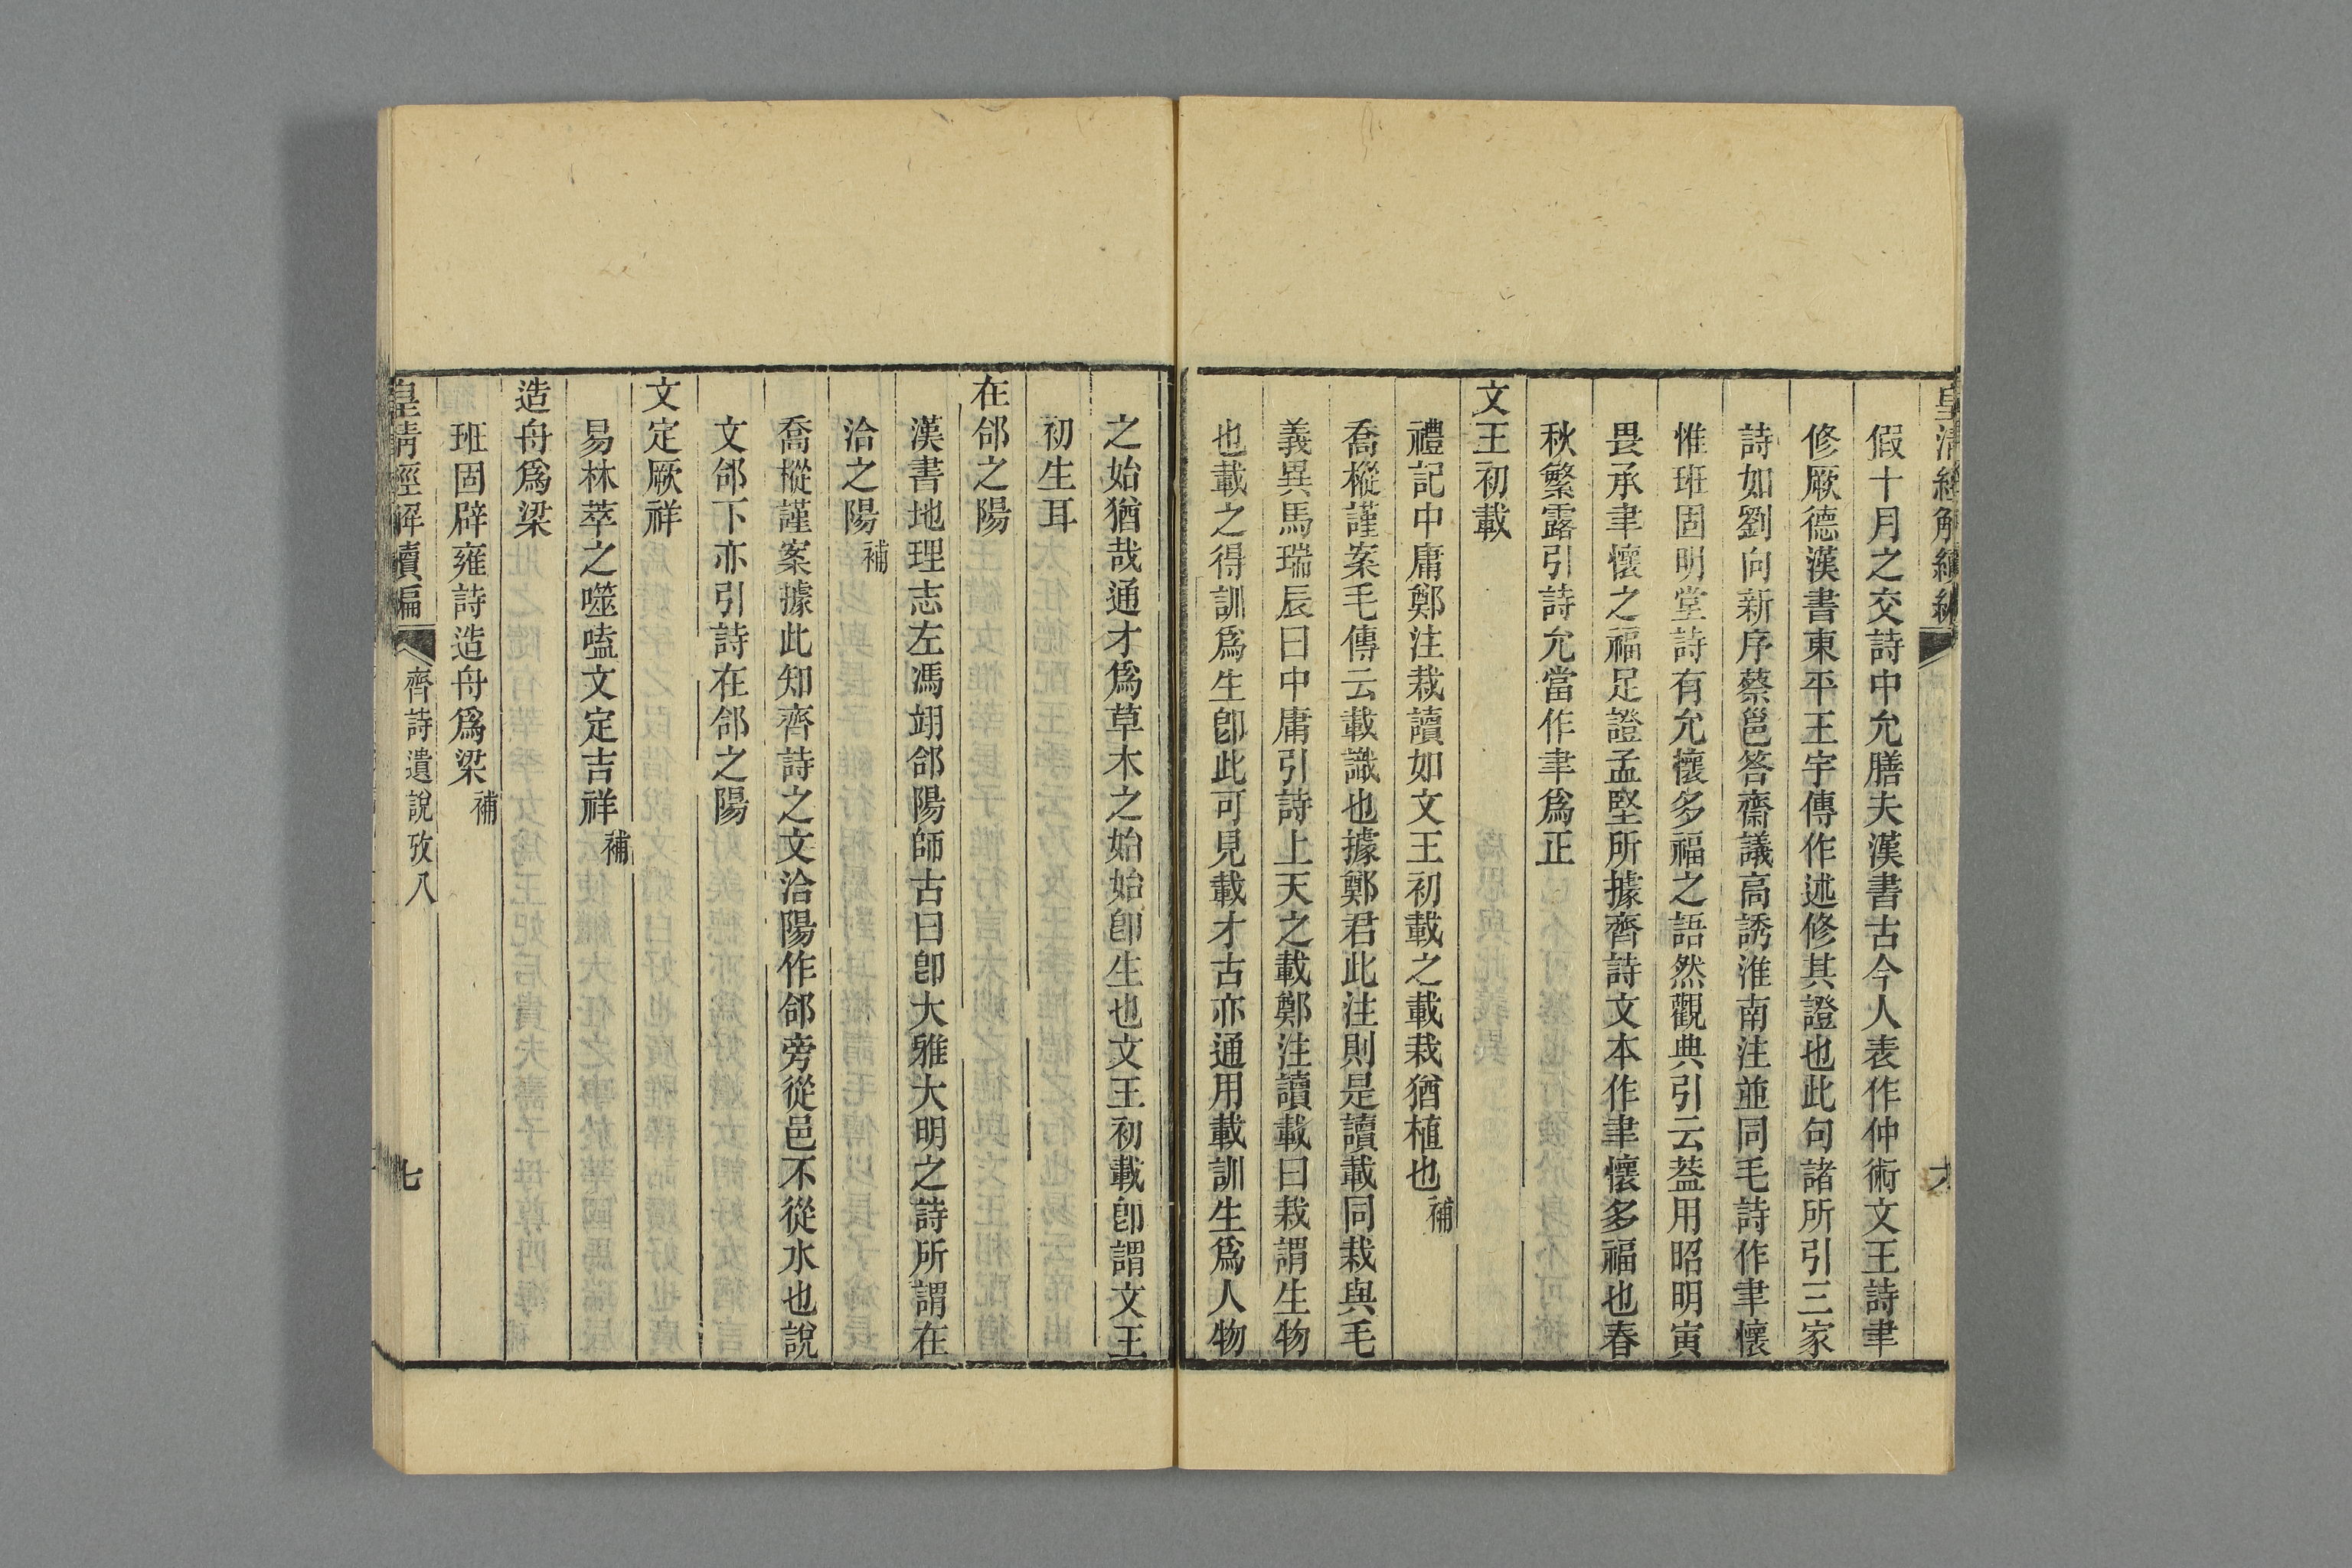 皇清經解續編
假十月之交詩中允膳夫漢書古今人表作仲術文王詩聿
修厥德漢書東平王宇傳作述修其證也此句諸所引三家
詩如劉向新序蔡邕答齋議高誘淮南注並同毛詩作聿懷
惟班固明堂詩有允懷多福之語然觀典引云葢用昭明寅
畏承聿懷之福足證孟堅所據齊詩文本作聿懷多福也春
秋繁露引詩允當作聿爲正
文王初載
禮記中庸鄭注栽讀如文王初載之載栽猶植也補
喬樅謹案毛傳云載識也據鄭君此注則是讀載同栽與毛
義異馬瑞辰曰中庸引詩上天之載鄭注讀載曰栽謂生物
也載之得訓爲生卽此可見載才古亦通用載訓生爲人物
之始猶哉通才爲草木之始始卽生也文王初載卽謂文王
初生耳
在郃之陽
漢書地理志左馮翊郃陽師古曰卽大雅大明之詩所謂在
洽之陽補
喬樅謹案據此知齊詩之文洽陽作郃旁從邑不從水也說
文郃下亦引詩在郃之陽
文定厥祥
易林萃之噬嗑文定吉祥補
造舟爲梁
班固辟雍詩造舟爲梁補
皇清經解續編
齊詩遺說攷八
七